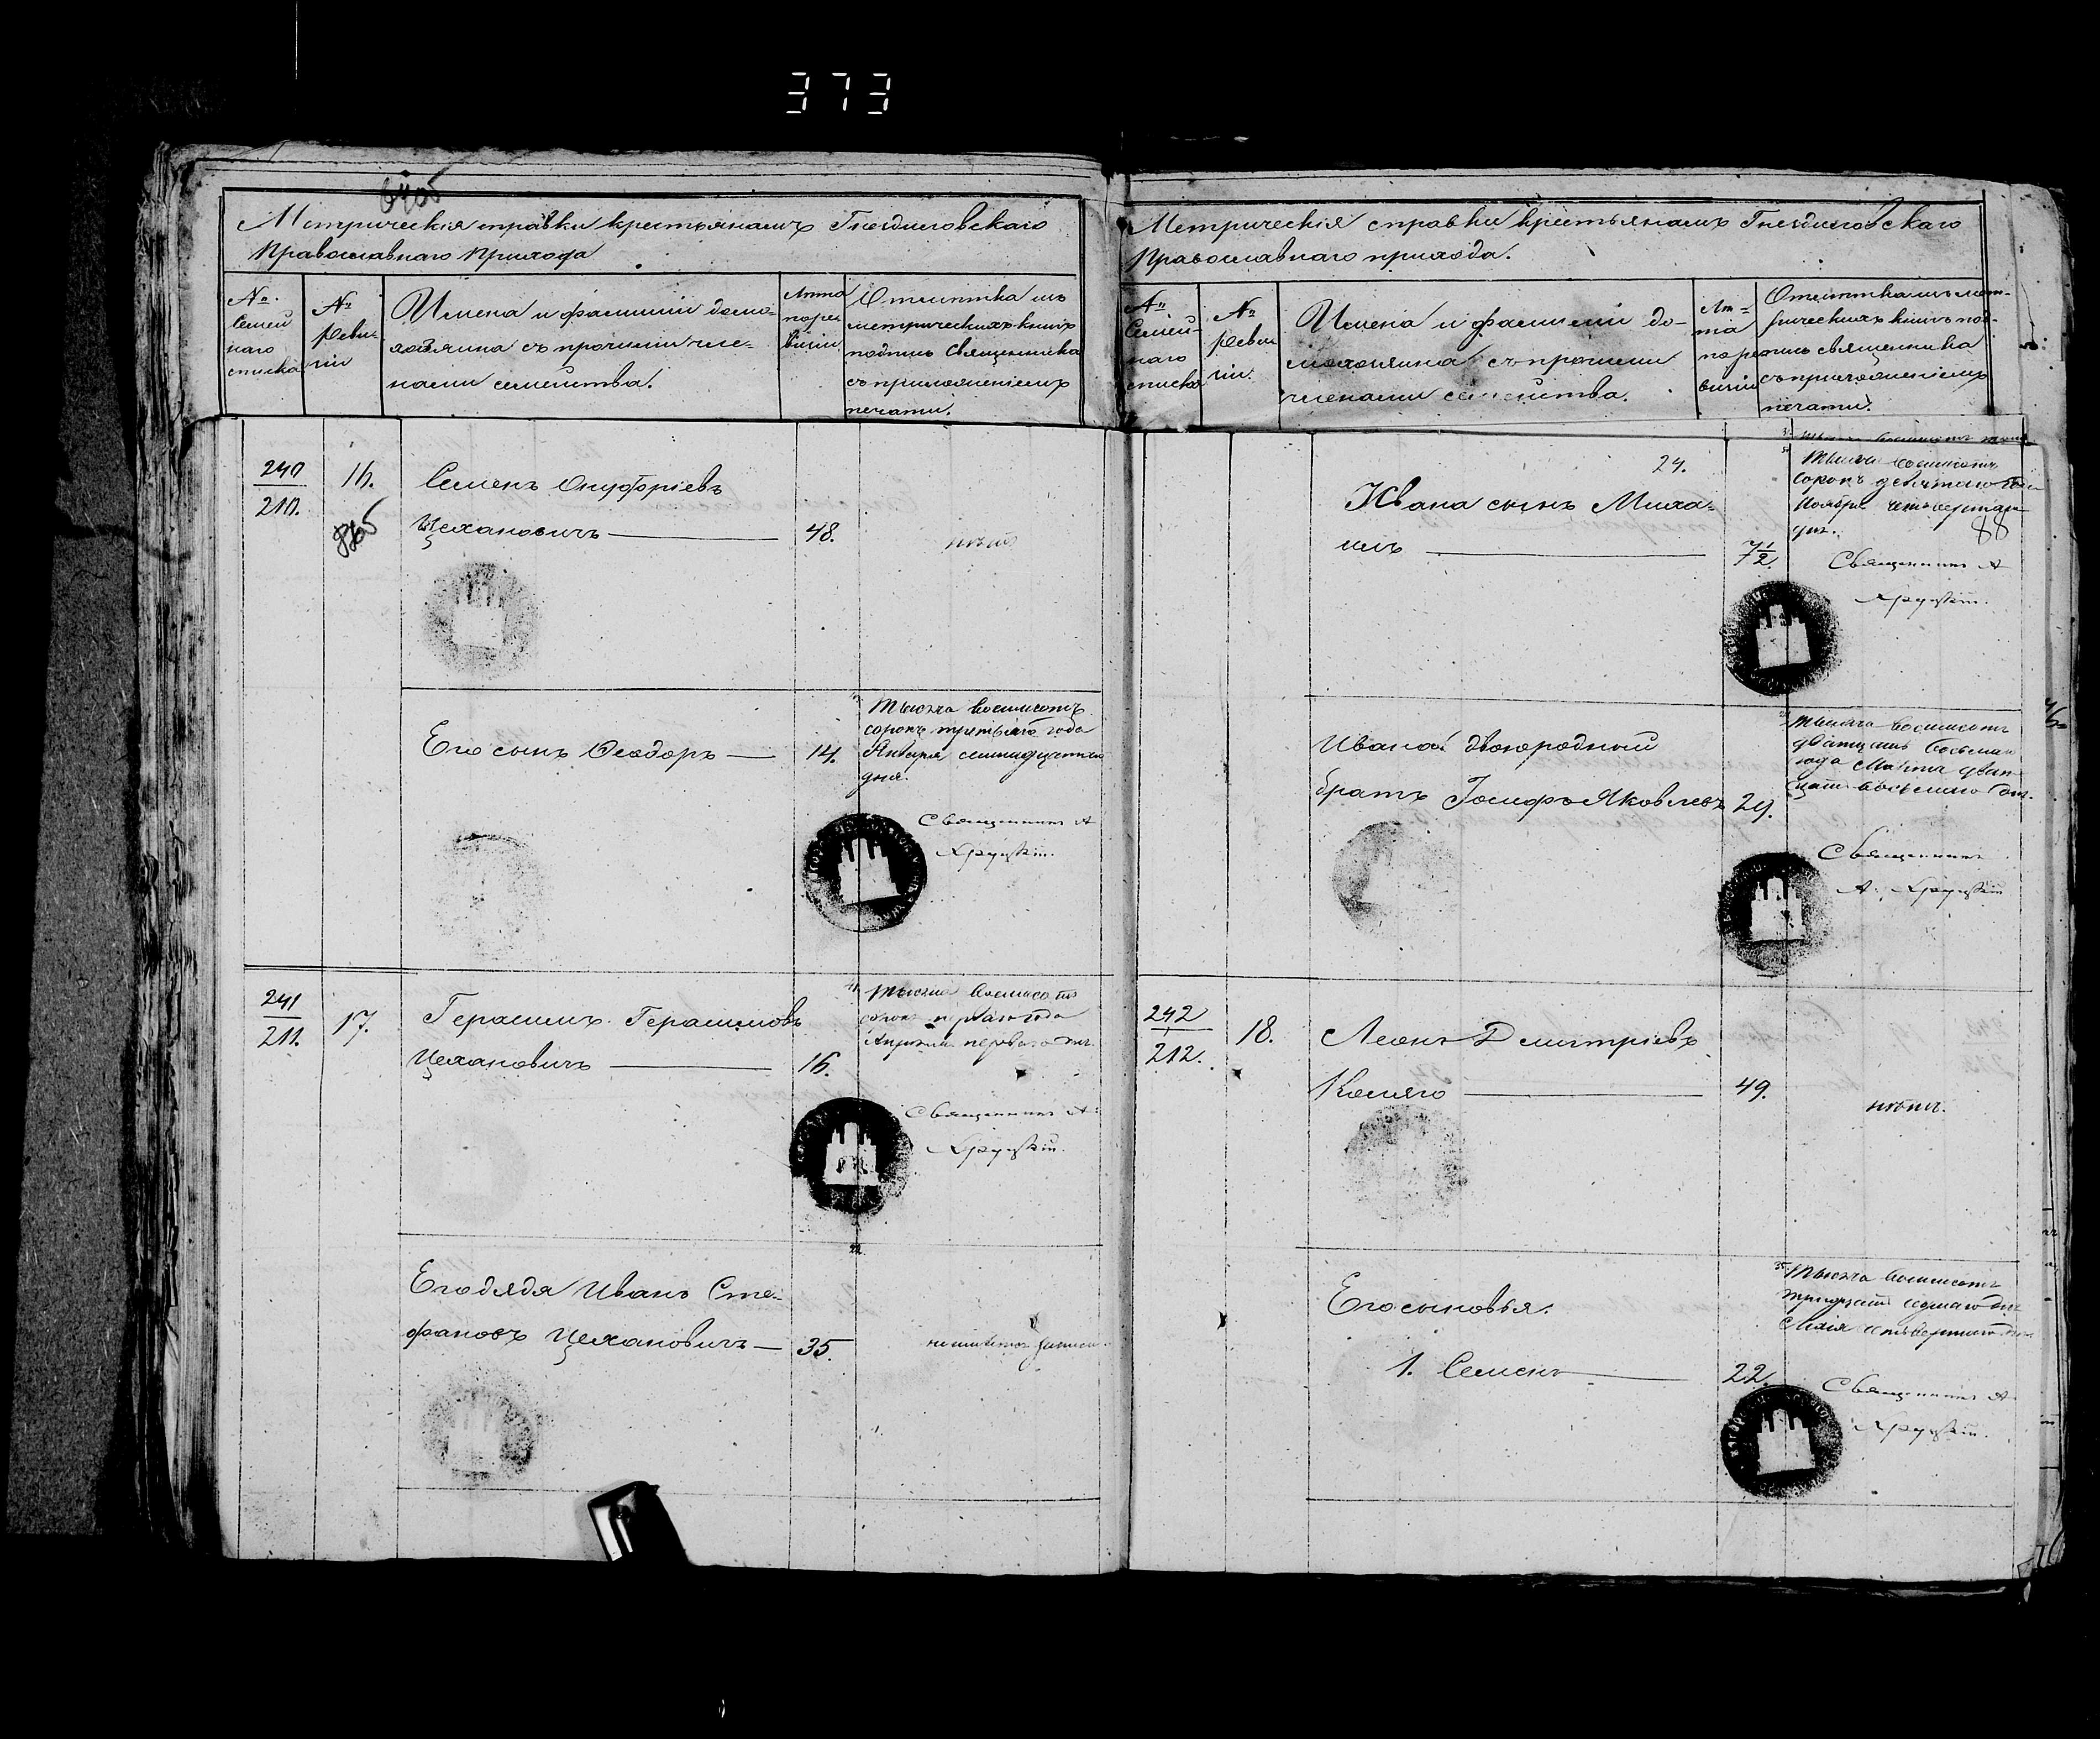 373
Метрическія справки крестьянамъ Гнездиловскаго
Православнаго прихода
№
Семей
наго
списка
№
реви-
зіи
Имена и фамиліи домо-
хозяина съ прочими чле-
нами семейства.
Лѣта
по ре-
визіи
Отмѣтка изъ
метрическихъ книгъ
подпись священника
съ приложеніемъ
печати.
240
210.
16.
Семенъ Онуфріевъ
Цехановичъ — 48.
нѣтъ
Его сынъ Ѳеодоръ — 14.
Тысяча восемьсотъ
сорокъ третьяго года
Января семнадцатаго
дня.
Священникъ А
Хруцкій.
241
211.
17.
Герасимъ Герасимовъ
Цехановичъ — 16.
Тысяча восемьсотъ
сорокъ перваго года
Апрѣля перваго дня.
Священникъ А.
Хруцкій.
Его дядя Иванъ Сте-
фановъ Цехановичъ — 35.
Метрическія справки крестьянамъ Гнездиловскаго
Православнаго прихода.
№
Семей-
наго
списка
№
реви
зіи.
Имена и фамиліи до-
мохозяина съ прочими
членами семейства.
Лѣ-
та
по ре
визіи
Отмѣтка изъ мет-
рическихъ книгъ под-
пись священника
съ приложеніемъ
печати.
24.
Ивана сынъ Миха-
илъ — 7 1/2.
Тысяча восемьсотъ
сорокъ девятаго года
Ноября четвертаго
дня.
88
Священникъ А
Хруцкій.
Ивана двоюродный
братъ Іосифъ Яковлевъ 29.
Тысяча восемьсотъ
двадцать восьмаго
года Марта двад-
цать восьмаго дня.
Священникъ
А. Хруцкій
242
212.
18.
Леонъ Дмитріевъ
Комяго — 49.
нѣтъ.
Его сыновья.
1. Семенъ — 22.
Тысяча восемьсотъ
Священникъ А
Хруцкій.